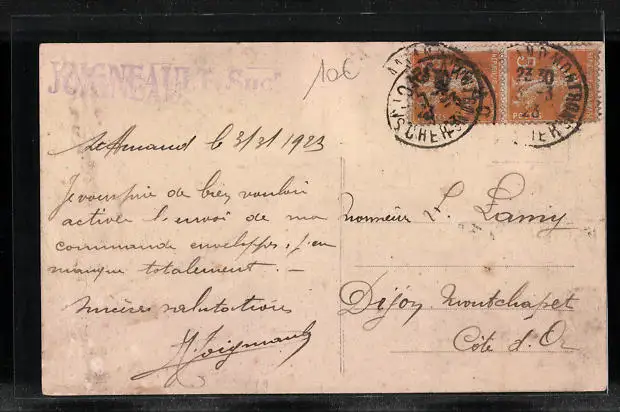 JOIGNEAULT, Succ
10€
St Amand le 3/31 1923
Je vous prie de bien vouloir
activer l'envoi de ma
commande enveloppes, j'en
manque totalement. —
Sincères salutations
J. Joigneault
Monsieur L. Lamy
Dijon Montchapet
Côte d'Or
ST AMAND MONTROND
CHER
23 30
23